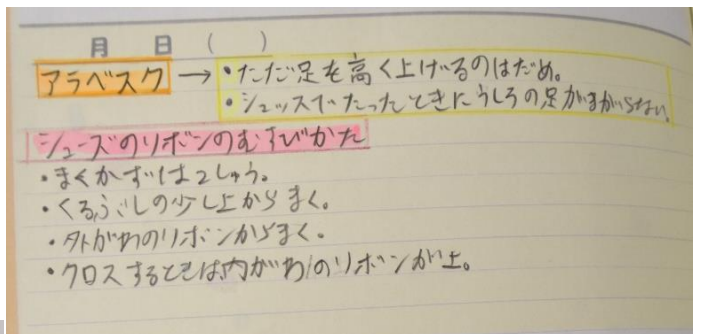 月 日 ( )
アラベスク → ・ただ足を高く上げるのはだめ。
・シュッスでたったときにうしろの足がまがらない。
シューズのリボンのむすびかた
・まくかずは2しゅう。
・くるぶしの少し上からまく。
・外がわのリボンからまく。
・クロスするときは内がわのリボンが上。